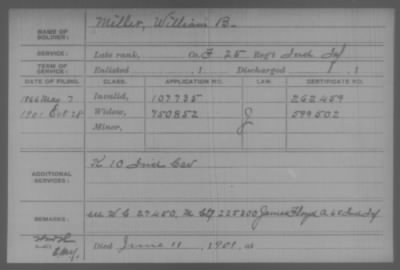 NAME OF SOLDIER: Miller, William B.
SERVICE: Late rank, Co. F 25 Reg't Ind Inf
TERM OF SERVICE: Enlisted , 1 Discharged , 1
DATE OF FILING. CLASS. APPLICATION NO. LAW. CERTIFICATE NO.
1866 May 7 Invalid, 107735 262459
1901 Oct 28 Widow, 750852 J 599502
Minor,
ADDITIONAL SERVICES: K 10 Ind Cav
REMARKS: see W C 27450, M Ctf 225800 James Floyd A 60 Ind Inf
Died June 11, 1901, at